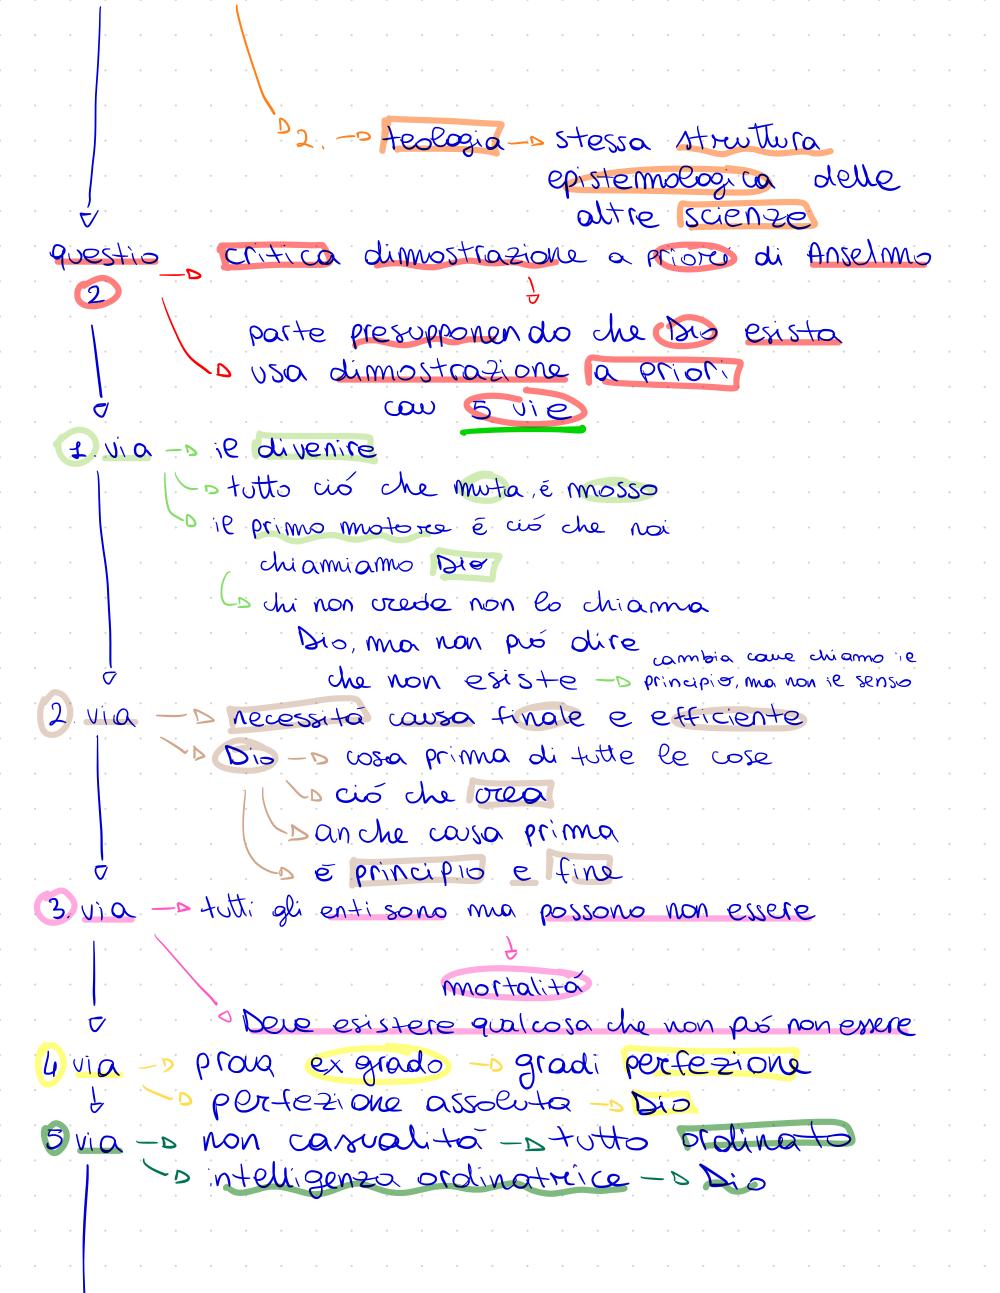 2. teologia stessa struttura
epistemologica delle
altre scienze
questio critica dimostrazione a priori di Anselmo
2
parte presupponendo che Dio esista
usa dimostrazione a priori
con 5 vie
1. via il divenire
tutto ció che muta, é mosso
il primo motore é ció che noi
chiamiamo Dio
chi non crede non lo chiama
Dio, ma non puó dire
che non esiste cambia come chiamo il
principio, ma non il senso
2. via necessitá causa finale e efficiente
Dio cosa prima di tutte le cose
ció che crea
anche causa prima
é principio e fine
3. via tutti gli enti sono ma possono non essere
mortalitá
Deve esistere qualcosa che non puó non essere
4 via prova ex grado gradi perfezione
perfezione assoluta Dio
5 via non casualitá tutto ordinato
intelligenza ordinatrice Dio